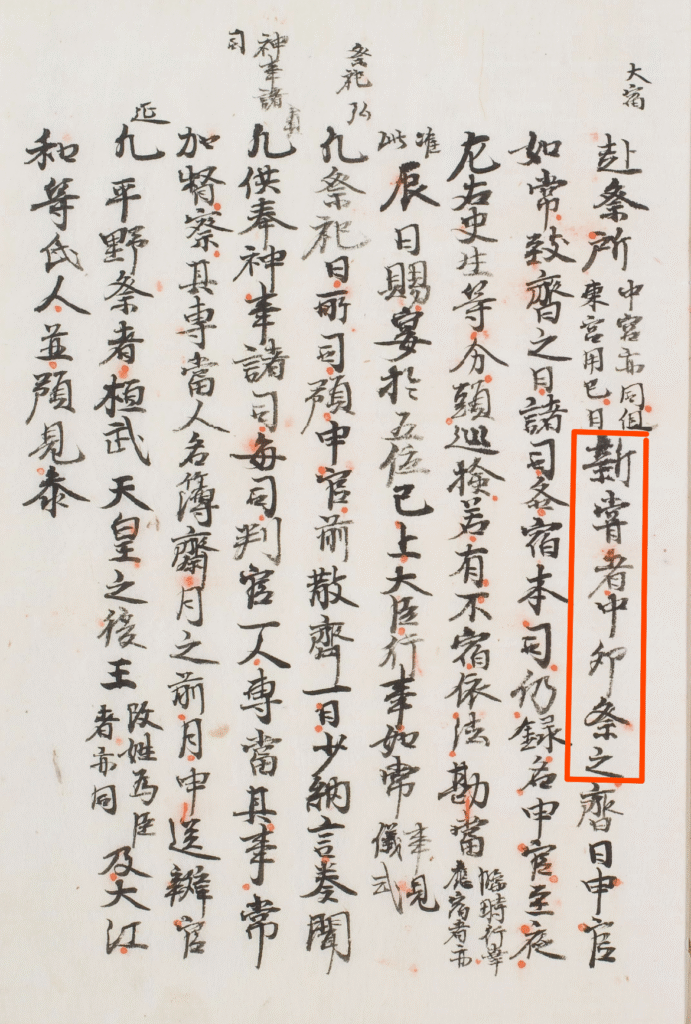 大宿
赴祭所中宮亦同但東宮用巳日新嘗者中卯祭之齋日申官
如常致齊之日諸司各宿本司仍録名申官至夜
左右史生等分頭巡撿若有不宿依法勘當臨時行幸應宿者亦
准此
辰日賜宴於五位已上大臣行事如常事見儀式
祭祀弘
凡祭祀日所司預申官前散齊一日少納言奏聞
神事諸司
凡供奉神事諸司每司判官一人專當其事常
加督察其專當人名簿齋月之前月申送辨官
延
凡平野祭者桓武天皇之後王改姓為臣者亦同及大江
和等氏人並預見泰